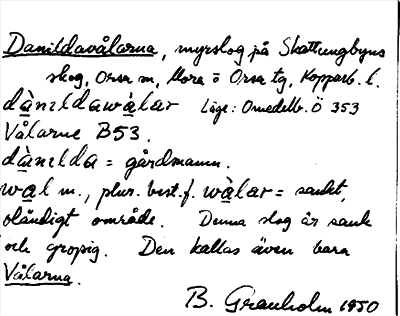 Danildavålarna, myrslog på Skattungbyns
skog, Orsa sn, Mora o Orsa tg, Kopparb. l.
dànıldawàlar Läge: Omedelb. Ö 353
Vålarne B53.
dànılda = gårdsnamn.
wal m., plur. best. f. wàlar = sankt,
oländigt område. Denna slog är sank
och gropig. Den kallas även bara
Vålarna.
B. Granholm 1950